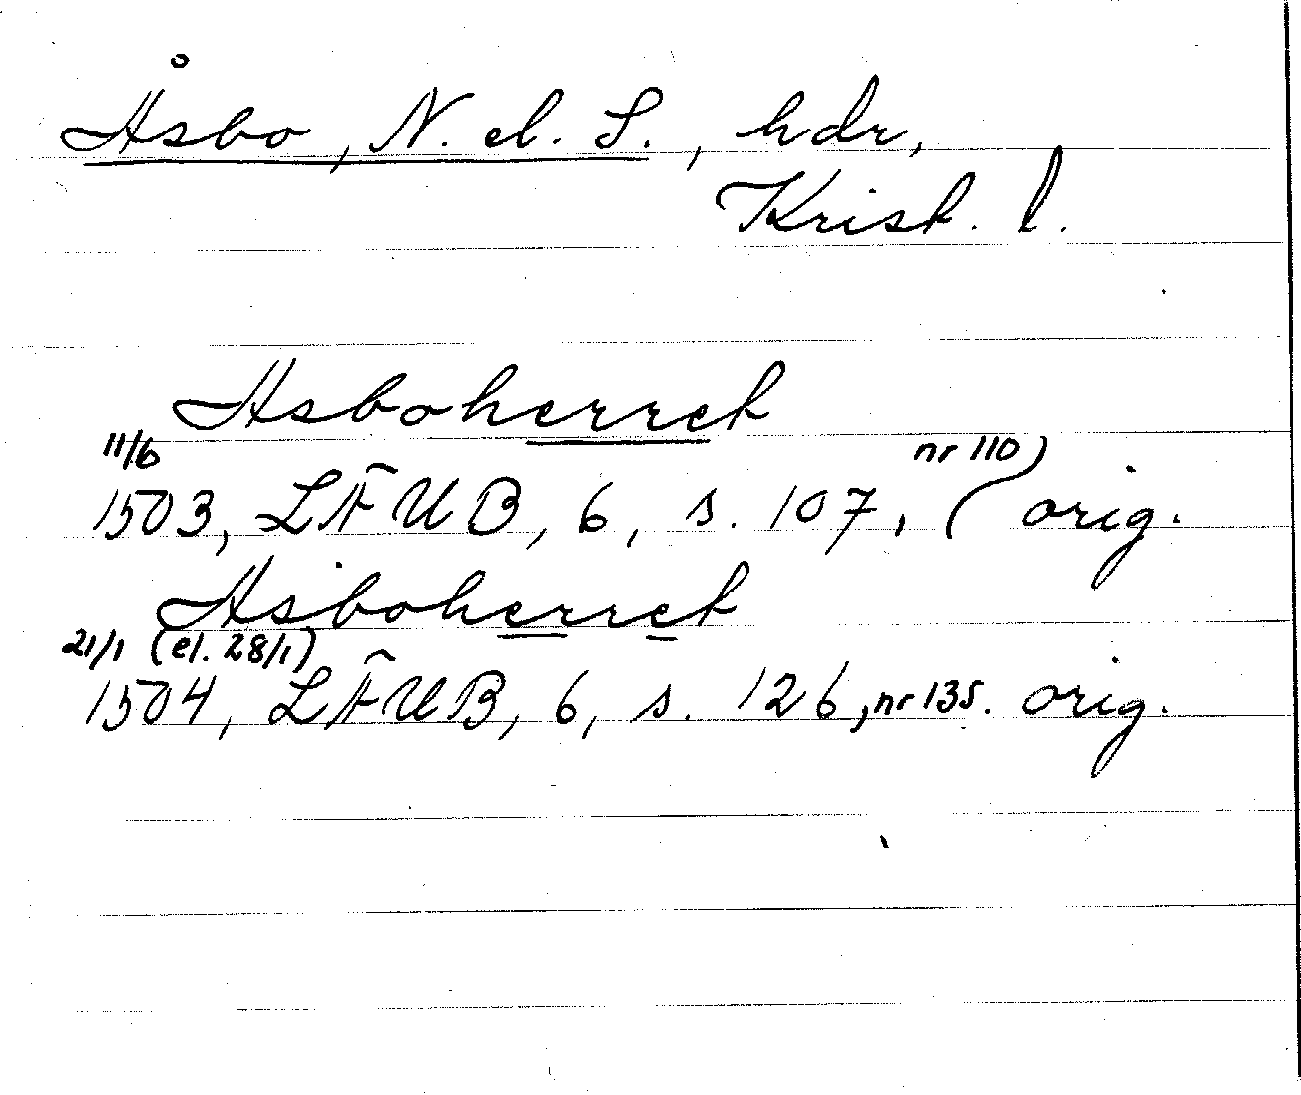 Åsbo, N. el. S., hdr,
Krist. l.
Asboherret
11/6
1503, LÄUB, 6, s. 107, (nr 110) orig.
Asboherret
21/1 (el. 28/1)
1504, LÄUB, 6, s. 126, nr 135. orig.